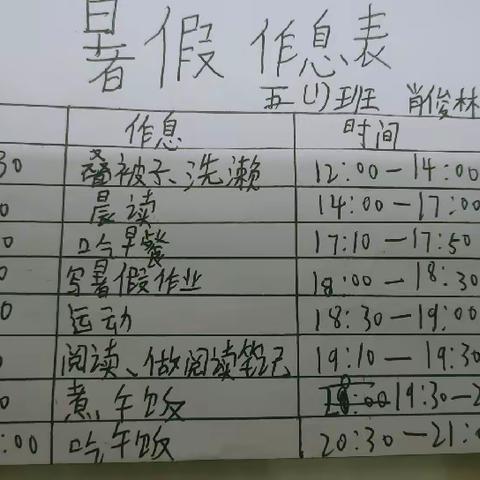 暑假作息表
五(1)班 肖俊林
作息 时间
30 叠被子、洗濑 12:00-14:00
0 晨读 14:00-17:00
0 吃早餐 17:10-17:50
0 写暑假作业 18:00-18:30
0 运动 18:30-19:00
阅读、做阅读笔记 19:10-19:30
0 煮午饭 19:30-2
:00 吃午饭 20:30-21: